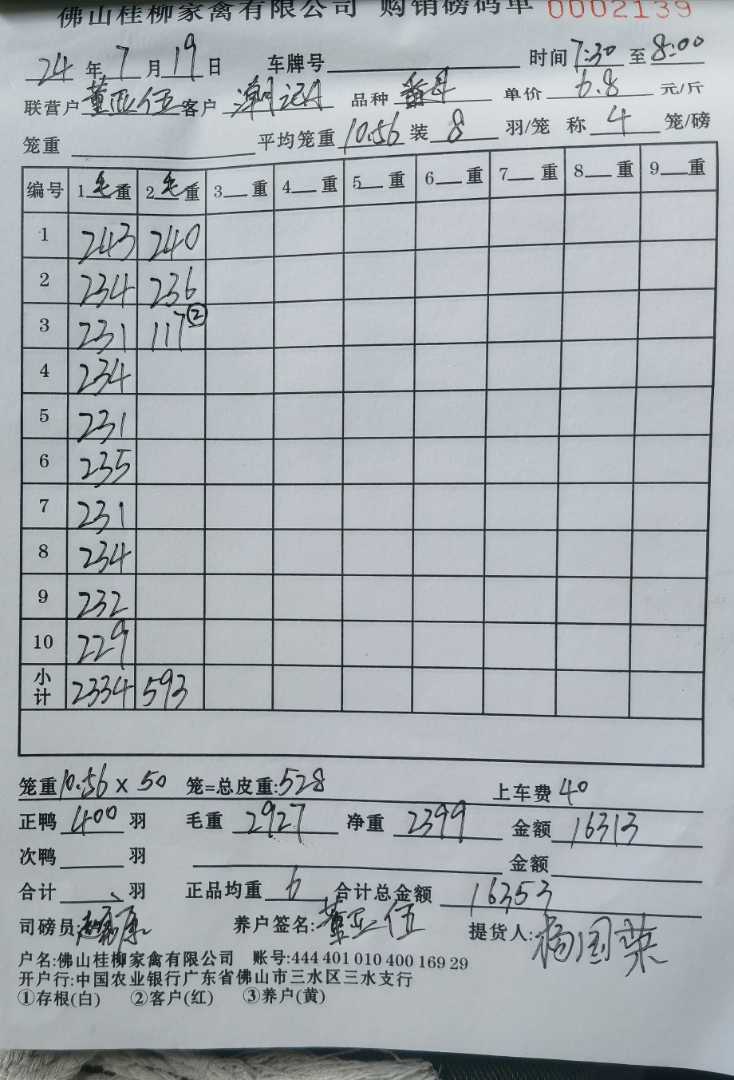 佛山桂柳家禽有限公司 购销磅码单 0002139
24年7月19日 车牌号 时间7:30至8:00
联营户董亚伍客户潮记 品种番鸭 单价6.8元/斤
笼重 平均笼重10.56装8羽/笼 称4笼/磅
编号 1毛重 2毛重 3重 4重 5重 6重 7重 8重 9重
1 243 240
2 234 236
3 231 117②
4 234
5 231
6 235
7 231
8 234
9 232
10 229
小计 2334 593
笼重10.56×50笼=总皮重:528 上车费40
正鸭400羽 毛重2927 净重2399 金额16313
次鸭羽 金额
合计羽 正品均重6 合计总金额16353
司磅员: 养户签名:董亚伍 提货人:杨国荣
户名:佛山桂柳家禽有限公司 账号:444 401 010 400 169 29
开户行:中国农业银行广东省佛山市三水区三水支行
①存根(白) ②客户(红) ③养户(黄)